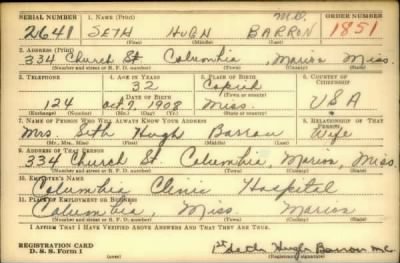 SERIAL NUMBER 1. NAME (Print) M.D. ORDER NUMBER
2641 SETH HUGH BARRON 1851
(First) (Middle) (Last)
2. ADDRESS (Print)
334 Church St. Columbia, Marion Miss.
(Number and street or R. F. D. number) (Town) (County) (State)
3. TELEPHONE 4. AGE IN YEARS 5. PLACE OF BIRTH 6. COUNTRY OF CITIZENSHIP
32 Copiah
DATE OF BIRTH (Town or county)
124 Oct. 9, 1908 Miss. USA
(Exchange) (Number) (Mo.) (Day) (Yr.) (State or country)
7. NAME OF PERSON WHO WILL ALWAYS KNOW YOUR ADDRESS 8. RELATIONSHIP OF THAT PERSON
Mrs. Seth Hugh Barron Wife
(Mr., Mrs., Miss) (First) (Middle) (Last)
9. ADDRESS OF THAT PERSON
334 Church St. Columbia, Marion, Miss.
(Number and street or R. F. D. number) (Town) (County) (State)
10. EMPLOYER'S NAME
Columbia Clinic Hospital
11. PLACE OF EMPLOYMENT OR BUSINESS
Columbia, Miss Marion
(Number and street or R. F. D. number) (Town) (County) (State)
I AFFIRM THAT I HAVE VERIFIED ABOVE ANSWERS AND THAT THEY ARE TRUE.
REGISTRATION CARD
D. S. S. Form 1 Seth Hugh Barron M.D.
(Registrant's signature)